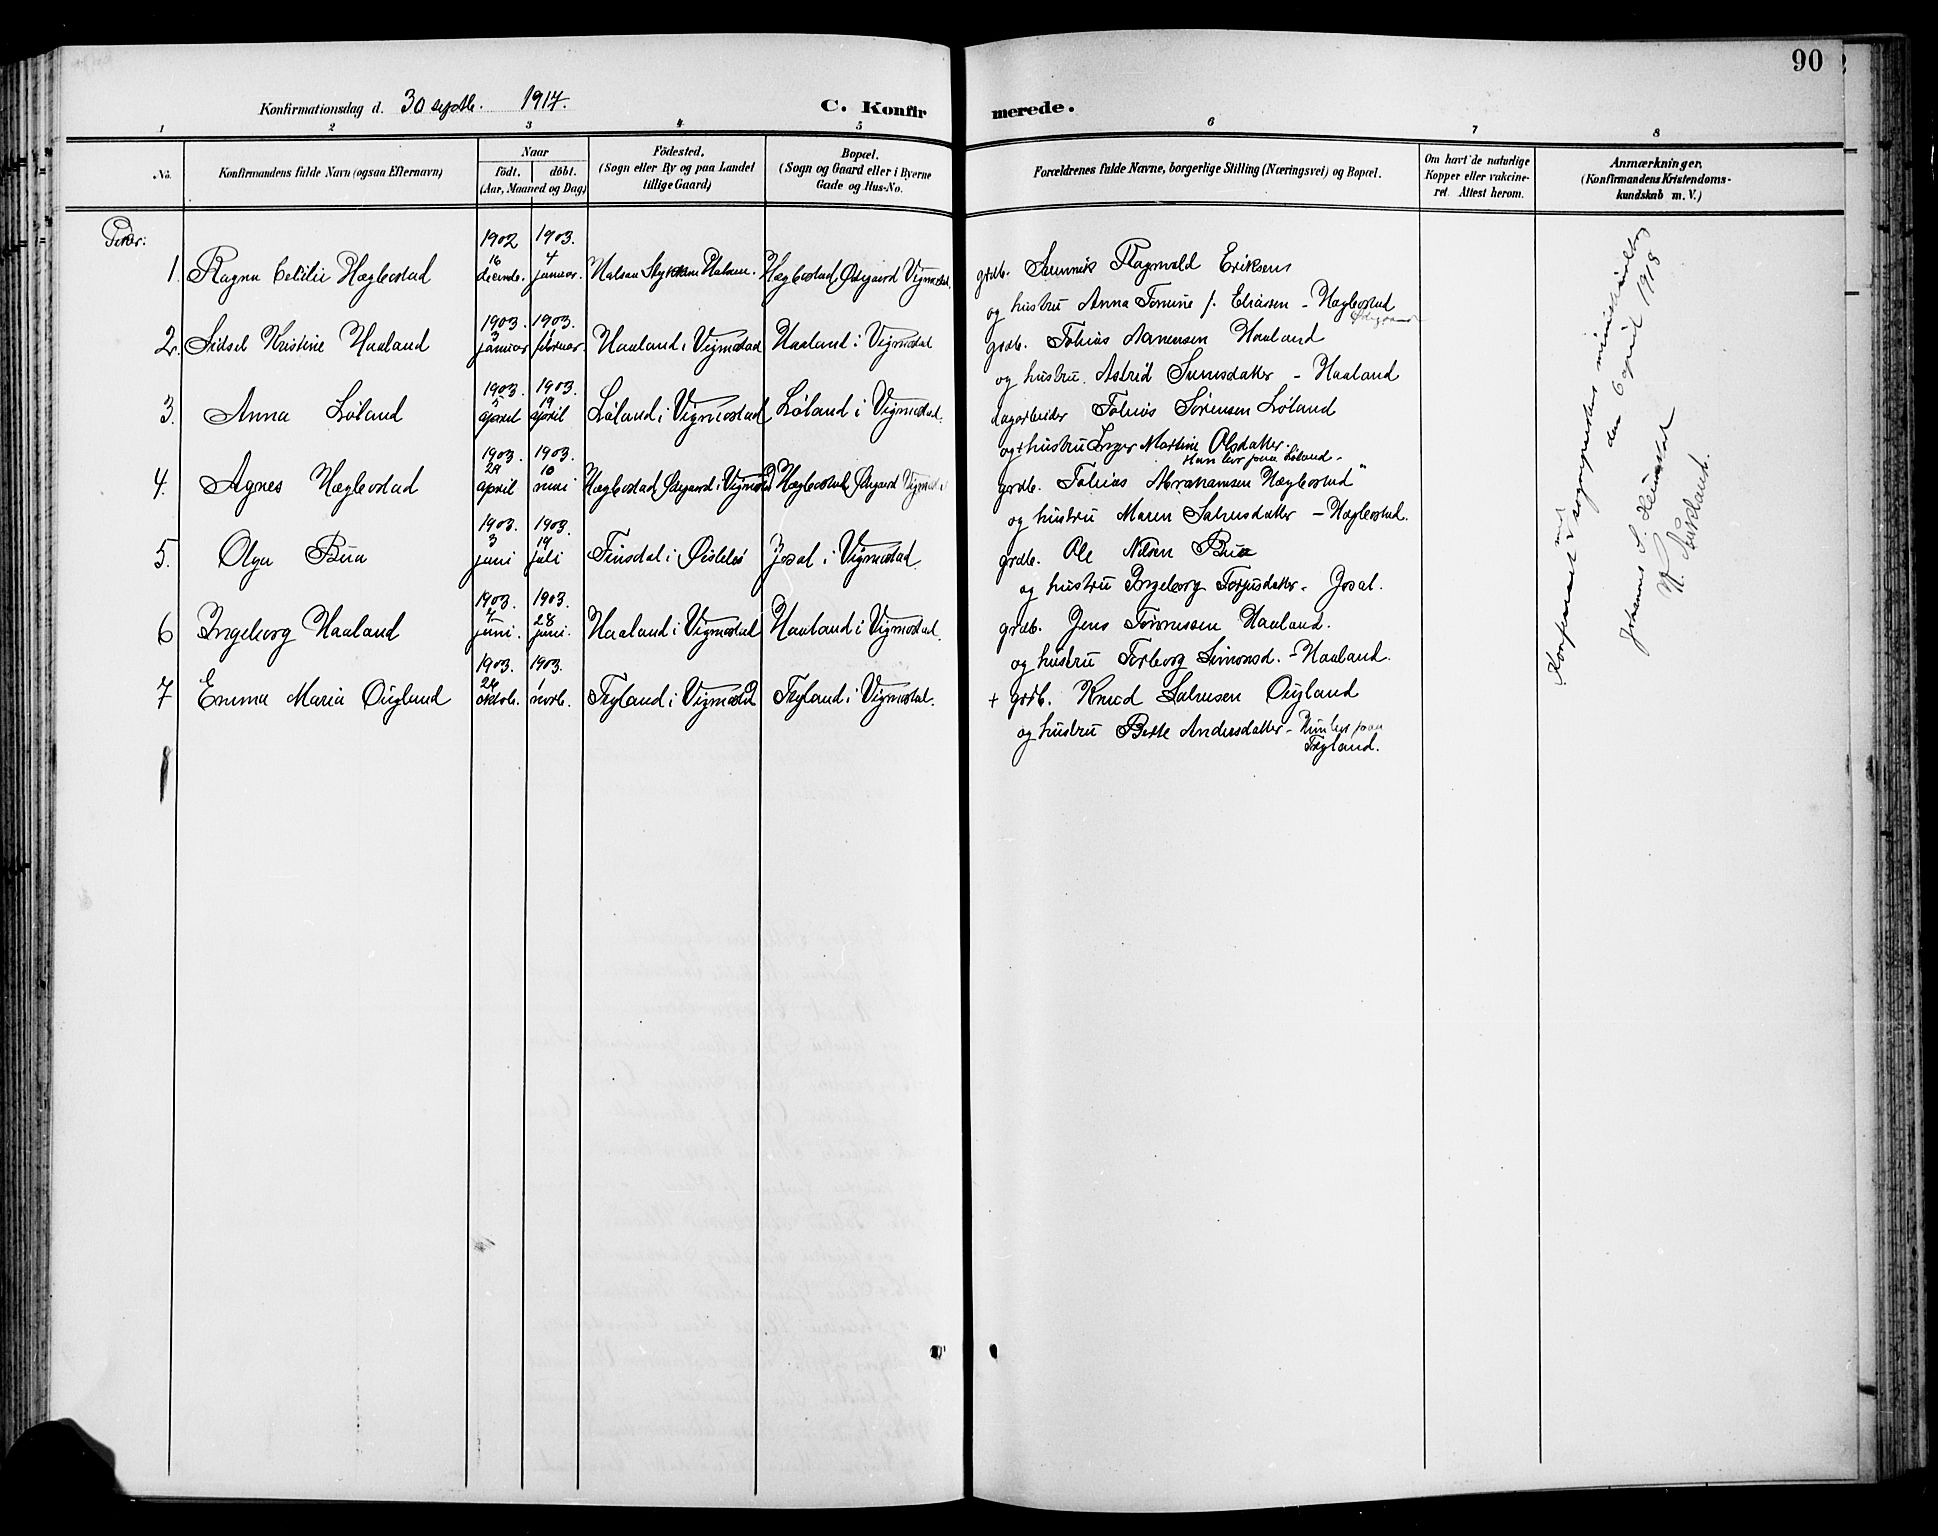 90
Konfirmationsdag d. 30 septb. 1917.
C. Konfirmerede.
1 2 3 4 5 6 7 8
No.
Konfirmandens fulde Navn (ogsaa Efternavn)
Naar
födt. döbt.
(Aar, Maaned og Dag)
Födested.
(Sogn eller By og paa Landet
tillige Gaard)
Bopæl.
(Sogn og Gaard eller i Byerne
Gade og Hus-No.
Forældrenes fulde Navne, borgerlige Stilling (Næringsvei) og Bopæl.
Om havt de naturlige
Kopper eller vakcine-
ret. Attest herom.
Anmærkninger.
(Konfirmandens Kristendoms-
kundskab m. V.)
Piker:
1902 1903.
1. Ragna Cecilie Hægbostad 16 decmb. 4 januar. Halsaa Halsaa. Hægbostad Ødegaard Vigmostad.
grdb. Ragnvald Eriksens
og hustru Anna Tomine f. Eliasen - Hægbostad
Ødegaard
1903. 1903.
2. Sidsel Kristine Haaland 3 januar 1 februar. Haaland i Vigmostad Haaland i Vigmostad
grdb. Tobias Aanensen Haaland
og hustru Astrid Sunesdatter - Haaland
1903. 1903.
3. Anna Løland 5 april 19 april Løland i Vigmostad Løland i Vigmostad.
dagarbeider Tobias Sørensen Løland
og + hustru Inger Martine Olsdatter.
Han bor paa Løland -
1903. 1903.
4. Agnes Hægbostad 29 april 10 mai Hægbostad Ødegaard i Vigmostad Hægbostad Ødegaard Vigmostad
grdb. Tobias Abrahamsen Hægbostad
og hustru Maren Salvesdatter - Hægbostad.
1903. 1903.
5. Olga Bua 3 juni 19 juli Finsdal i Øislebø Josal i Vigmostad.
grdb. Ole Nilsen Bua
og hustru Ingeborg Torjusdatter - Josal.
1903. 1903.
6 Ingeborg Haaland 7 juni. 28 juni. Haaland i Vigmostad Haaland i Vigmostad.
grdb. Jens Tønnessen Haaland.
og hustru Torborg Simonsd. - Haaland.
1903. 1903.
7 Emma Maria Øigland 24 oktob. 1 novb. Trygland i Vigmostad Trygland i Vigmostad.
+ grdb. Knud Salvesen Øigland
og hustru Berte Andersdatter - Hun bor paa
Trygland.
Konfereret med sogneprestens ministerialbog
den 6 april 1918
Johannes S.